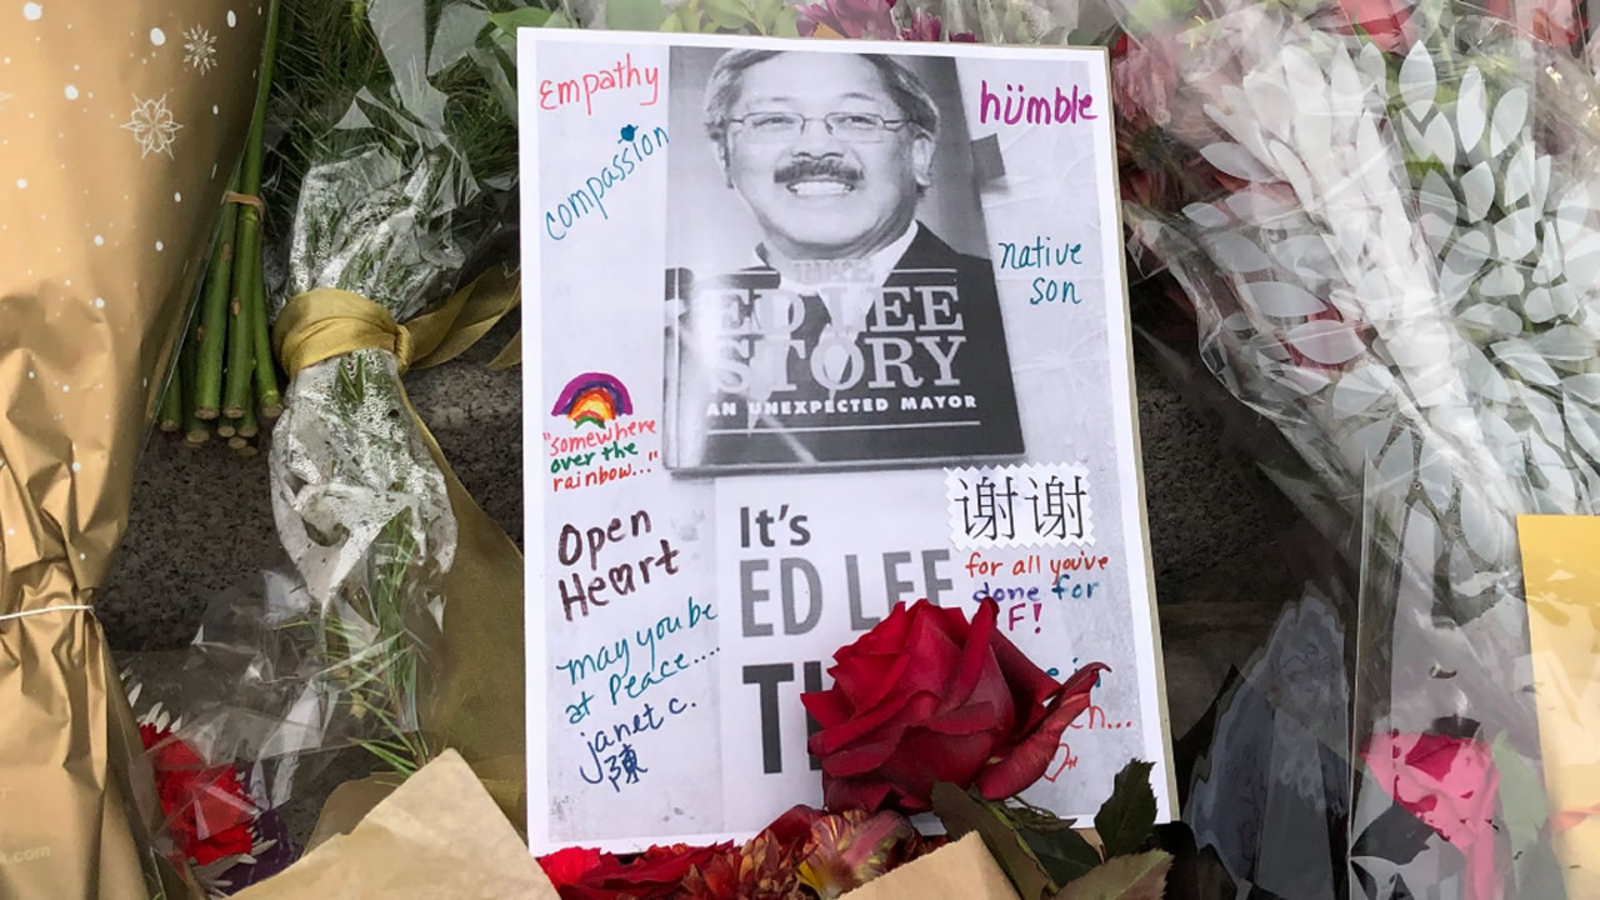 Empathy
compassion
humble
native
son
THE
ED LEE
STORY
AN UNEXPECTED MAYOR
"somewhere
over the
rainbow..."
Open
Heart
may you be
at Peace....
janet c.
陳
It's
ED LEE
谢谢
for all you've
done for
F!
.com